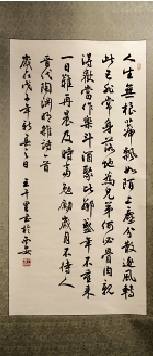 人生無根蒂飄如陌上塵分散逐風轉
此已非常身落地為兄弟何必骨肉親
得歡當作樂斗酒聚比鄰盛年不重來
一日難再晨及時當勉勵歲月不待人
晉代陶淵明雜詩一首
歲次戊子年新春 書於西安